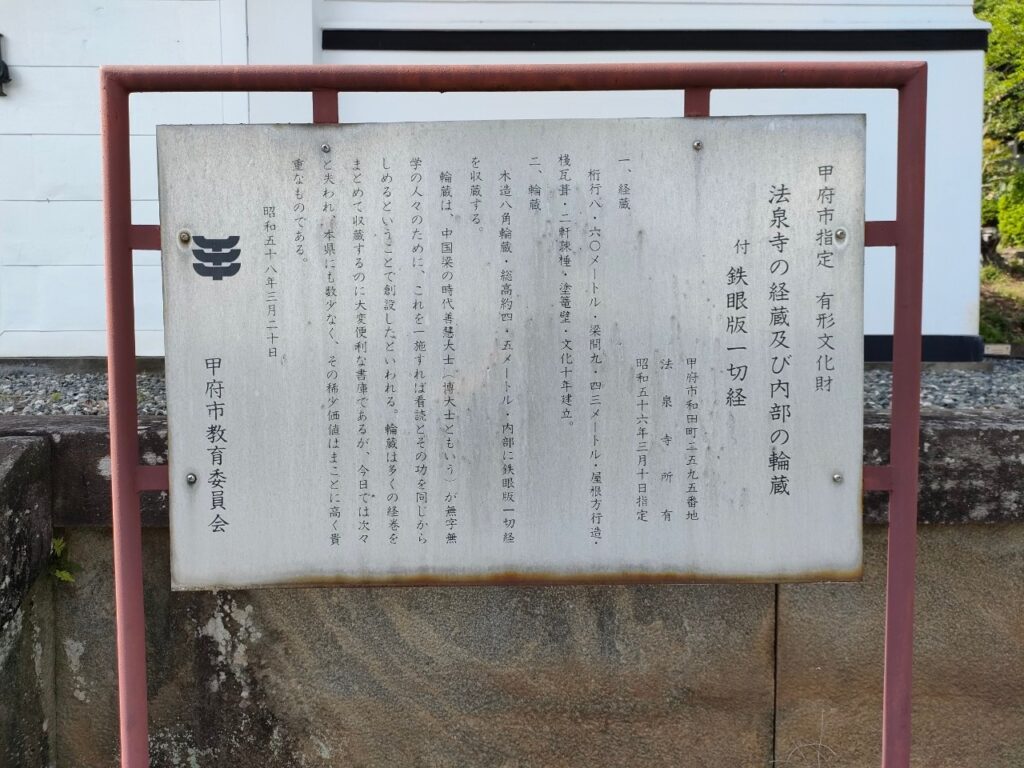 甲府市指定　有形文化財
法泉寺の経蔵及び内部の輪蔵
付　鉄眼版一切経
甲府市和田町二五九五番地
法泉寺所有
昭和五十六年三月十日指定
一、経蔵
桁行八・六〇メートル・梁間九・四三メートル・屋根方行造・
桟瓦葺・二軒疎棰・塗篭壁・文化十年建立。
二、輪蔵
木造八角輪蔵・総高約四・五メートル・内部に鉄眼版一切経
を収蔵する。
輪蔵は、中国梁の時代善慧大士（博大士ともいう）が無字無
学の人々のために、これを一施すれば看読とその功を同じから
しめるということで創設したといわれる。輪蔵は多くの経巻を
まとめて収蔵するのに大変便利な書庫であるが、今日では次々
と失われ、本県にも数少なく、その稀少価値はまことに高く貴
重なものである。
昭和五十八年三月二十日
甲府市教育委員会